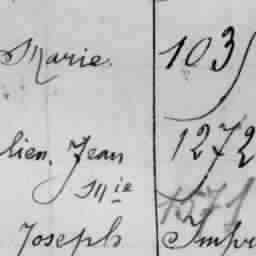 Marie. 103
lien, Jean 1272
Mie 1271
Joseph